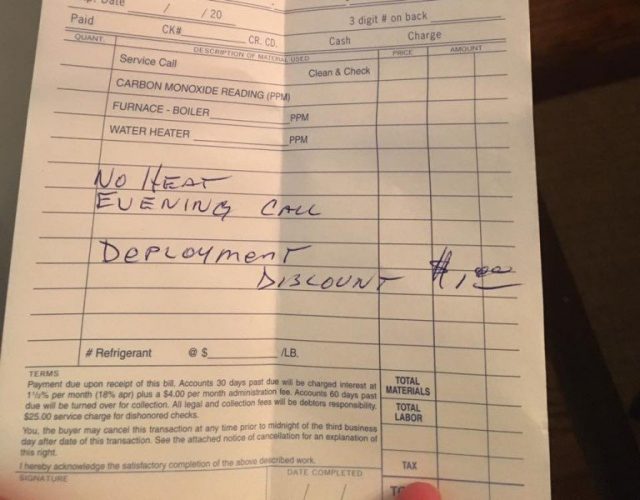 Date / / 20 3 digit # on back
Paid CK# CR. CD. Cash Charge
QUANT. DESCRIPTION OF MATERIAL USED PRICE AMOUNT
Service Call Clean & Check
CARBON MONOXIDE READING (PPM)
FURNACE - BOILER PPM
WATER HEATER PPM
NO HEAT
EVENING CALL
DEPLOYMENT
DISCOUNT $1,00
# Refrigerant @ $ /LB.
TERMS
Payment due upon receipt of this bill. Accounts 30 days past due will be charged interest at
1½% per month (18% apr) plus a $4.00 per month administration fee. Accounts 60 days past
due will be turned over for collection. All legal and collection fees will be debtors responsibility.
$25.00 service charge for dishonored checks.
You, the buyer may cancel this transaction at any time prior to midnight of the third business
day after date of this transaction. See the attached notice of cancellation for an explanation of
this right.
I hereby acknowledge the satisfactory completion of the above described work.
SIGNATURE DATE COMPLETED
/ /
TOTAL
MATERIALS
TOTAL
LABOR
TAX